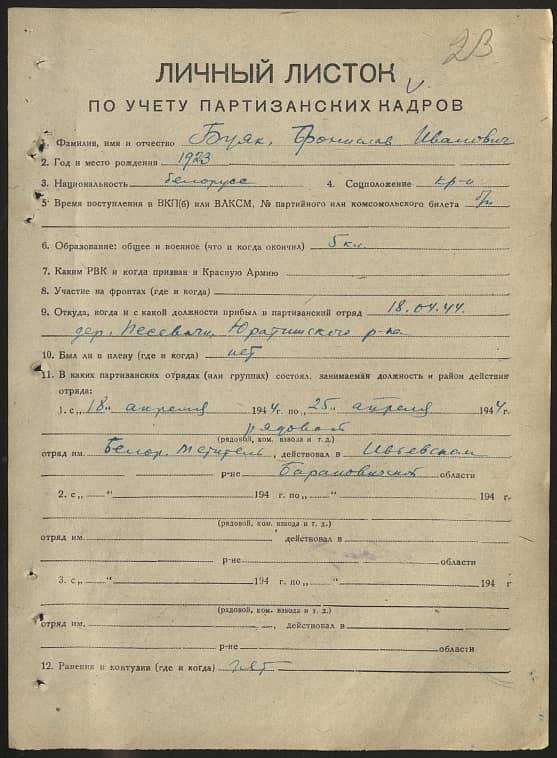 23
ЛИЧНЫЙ ЛИСТОК
ПО УЧЕТУ ПАРТИЗАНСКИХ КАДРОВ
1. Фамилия, имя и отчество Буяк, Бронислав Иванович
2. Год и место рождения 1923
3. Национальность белорусс 4. Соцположение кр-н
5. Время поступления в ВКП(б) или ВЛКСМ, № партийного или комсомольского билета б/п
6. Образование: общее и военное (что и когда окончил) 5 кл.
7. Каким РВК и когда призван в Красную Армию
8. Участие на фронтах (где и когда)
9. Откуда, когда и с какой должности прибыл в партизанский отряд 18.04.44.
дер. Юратишского р-на
10. Был ли в плену (где и когда) нет
11. В каких партизанских отрядах (или группах) состоял, занимаемая должность и район действия
отряда:
1. с „18" апреля 1944 г. по „25" апреля 1944 г.
рядовой
(рядовой, ком. взвода и т. д.)
отряд им. Белор. Мститель, действовал в Ивьевском
р-не Барановичской области
2. с „ " 194 г. по „ " 194 г.
(рядовой, ком. взвода и т. д.)
отряд им. действовал в
р-не области
3. с „ " 194 г. по „ " 194 г
(рядовой, ком. взвода и т. д.)
отряд им. , действовал в
р-не области
12. Ранения и контузии (где и когда) нет